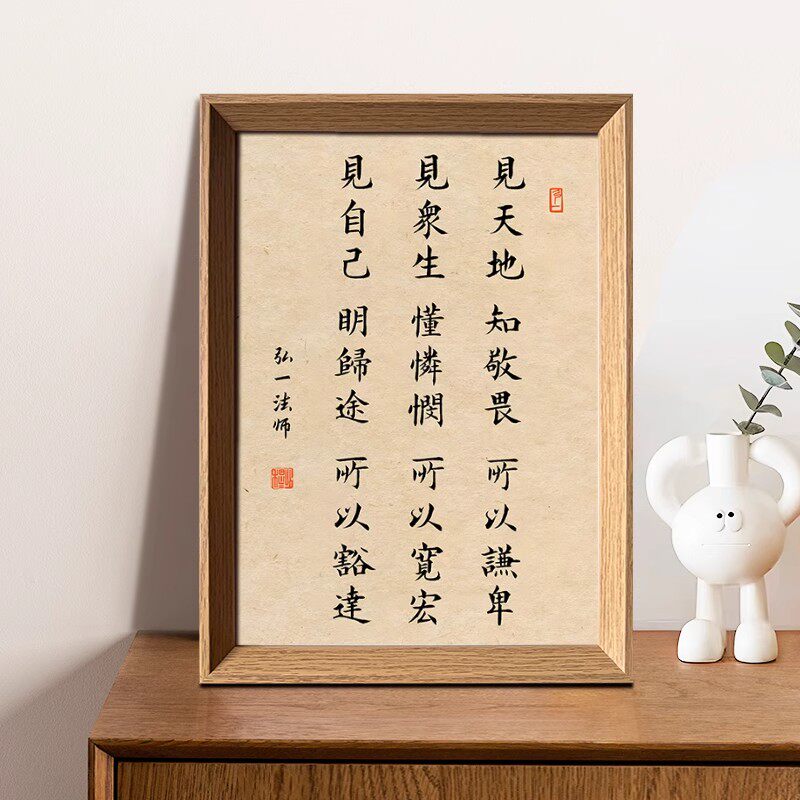 見天地 知敬畏 所以謙卑
見衆生 懂憐憫 所以寬宏
見自己 明歸途 所以豁達
弘一法师